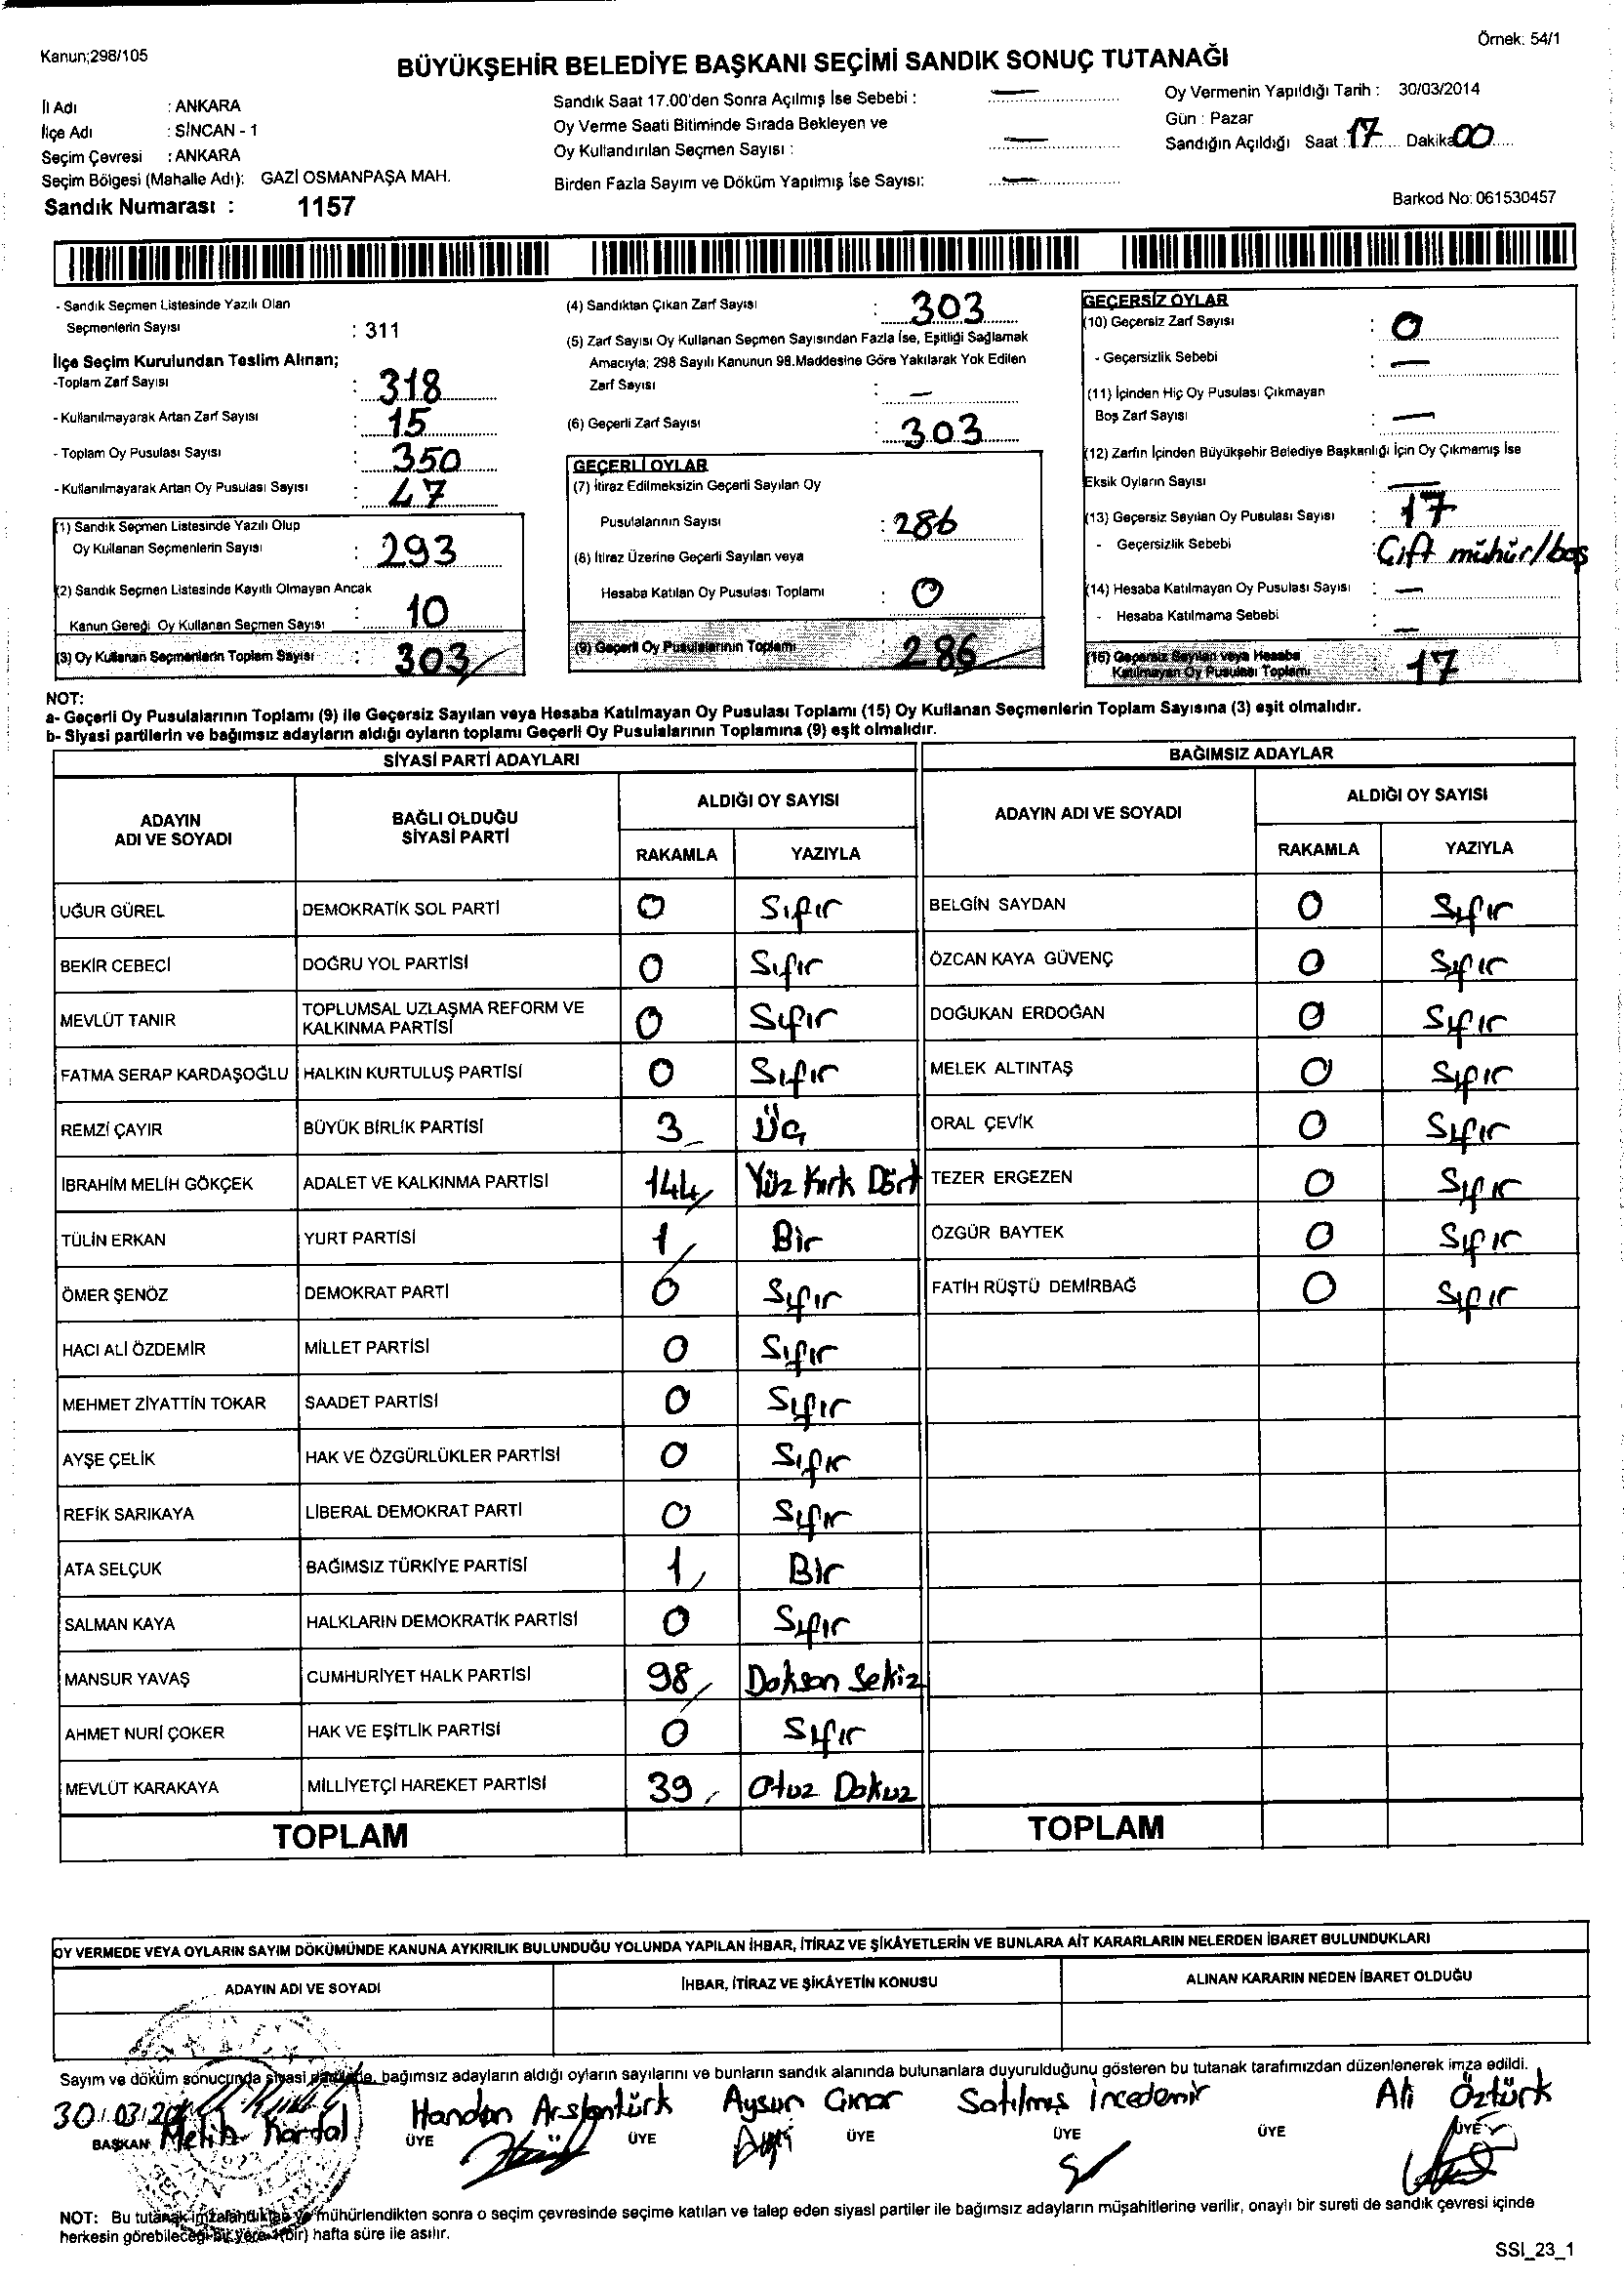 Kanun;298/105
Örnek: 54/1
BÜYÜKŞEHİR BELEDİYE BAŞKANI SEÇİMİ SANDIK SONUÇ TUTANAĞI
İl Adı : ANKARA
İlçe Adı : SİNCAN - 1
Seçim Çevresi : ANKARA
Seçim Bölgesi (Mahalle Adı): GAZİ OSMANPAŞA MAH.
Sandık Numarası : 1157
Sandık Saat 17.00'den Sonra Açılmış İse Sebebi : —
Oy Verme Saati Bitiminde Sırada Bekleyen ve
Oy Kullandırılan Seçmen Sayısı : —
Birden Fazla Sayım ve Döküm Yapılmış İse Sayısı: —
Oy Vermenin Yapıldığı Tarih : 30/03/2014
Gün : Pazar
Sandığın Açıldığı Saat : 17 Dakika 00
Barkod No: 061530457
- Sandık Seçmen Listesinde Yazılı Olan
Seçmenlerin Sayısı : 311
İlçe Seçim Kurulundan Teslim Alınan;
-Toplam Zarf Sayısı : 318
- Kullanılmayarak Artan Zarf Sayısı : 15
- Toplam Oy Pusulası Sayısı : 350
- Kullanılmayarak Artan Oy Pusulası Sayısı : 47
(1) Sandık Seçmen Listesinde Yazılı Olup
Oy Kullanan Seçmenlerin Sayısı : 293
(2) Sandık Seçmen Listesinde Kayıtlı Olmayan Ancak
Kanun Gereği Oy Kullanan Seçmen Sayısı : 10
(3) Oy Kullanan Seçmenlerin Toplam Sayısı : 303
(4) Sandıktan Çıkan Zarf Sayısı : 303
(5) Zarf Sayısı Oy Kullanan Seçmen Sayısından Fazla İse, Eşitliği Sağlamak
Amacıyla; 298 Sayılı Kanunun 98.Maddesine Göre Yakılarak Yok Edilen
Zarf Sayısı : —
(6) Geçerli Zarf Sayısı : 303
GEÇERLİ OYLAR
(7) İtiraz Edilmeksizin Geçerli Sayılan Oy
Pusulalarının Sayısı : 286
(8) İtiraz Üzerine Geçerli Sayılan veya
Hesaba Katılan Oy Pusulası Toplamı : 0
(9) Geçerli Oy Pusulalarının Toplamı : 286
GEÇERSİZ OYLAR
(10) Geçersiz Zarf Sayısı : 0
- Geçersizlik Sebebi : —
(11) İçinden Hiç Oy Pusulası Çıkmayan
Boş Zarf Sayısı : —
(12) Zarfın İçinden Büyükşehir Belediye Başkanlığı İçin Oy Çıkmamış İse
Eksik Oyların Sayısı : —
(13) Geçersiz Sayılan Oy Pusulası Sayısı : 17
- Geçersizlik Sebebi : Çift mühür/boş
(14) Hesaba Katılmayan Oy Pusulası Sayısı : —
- Hesaba Katılmama Sebebi : —
(15) Geçersiz Sayılan veya Hesaba
Katılmayan Oy Pusulası Toplamı : 17
NOT:
a- Geçerli Oy Pusulalarının Toplamı (9) ile Geçersiz Sayılan veya Hesaba Katılmayan Oy Pusulası Toplamı (15) Oy Kullanan Seçmenlerin Toplam Sayısına (3) eşit olmalıdır.
b- Siyasi partilerin ve bağımsız adayların aldığı oyların toplamı Geçerli Oy Pusulalarının Toplamına (9) eşit olmalıdır.
SİYASİ PARTİ ADAYLARI
ADAYIN ADI VE SOYADI BAĞLI OLDUĞU SİYASİ PARTİ ALDIĞI OY SAYISI RAKAMLA YAZIYLA
UĞUR GÜREL DEMOKRATİK SOL PARTİ 0 Sıfır
BEKİR CEBECİ DOĞRU YOL PARTİSİ 0 Sıfır
MEVLÜT TANIR TOPLUMSAL UZLAŞMA REFORM VE KALKINMA PARTİSİ 0 Sıfır
FATMA SERAP KARDAŞOĞLU HALKIN KURTULUŞ PARTİSİ 0 Sıfır
REMZİ ÇAYIR BÜYÜK BİRLİK PARTİSİ 3 Üç
İBRAHİM MELİH GÖKÇEK ADALET VE KALKINMA PARTİSİ 144 Yüz Kırk Dört
TÜLİN ERKAN YURT PARTİSİ 1 Bir
ÖMER ŞENÖZ DEMOKRAT PARTİ 0 Sıfır
HACI ALİ ÖZDEMİR MİLLET PARTİSİ 0 Sıfır
MEHMET ZİYATTİN TOKAR SAADET PARTİSİ 0 Sıfır
AYŞE ÇELİK HAK VE ÖZGÜRLÜKLER PARTİSİ 0 Sıfır
REFİK SARIKAYA LİBERAL DEMOKRAT PARTİ 0 Sıfır
ATA SELÇUK BAĞIMSIZ TÜRKİYE PARTİSİ 1 Bir
SALMAN KAYA HALKLARIN DEMOKRATİK PARTİSİ 0 Sıfır
MANSUR YAVAŞ CUMHURİYET HALK PARTİSİ 98 Doksan Sekiz
AHMET NURİ ÇOKER HAK VE EŞİTLİK PARTİSİ 0 Sıfır
MEVLÜT KARAKAYA MİLLİYETÇİ HAREKET PARTİSİ 39 Otuz Dokuz
TOPLAM
BAĞIMSIZ ADAYLAR
ADAYIN ADI VE SOYADI ALDIĞI OY SAYISI RAKAMLA YAZIYLA
BELGİN SAYDAN 0 Sıfır
ÖZCAN KAYA GÜVENÇ 0 Sıfır
DOĞUKAN ERDOĞAN 0 Sıfır
MELEK ALTINTAŞ 0 Sıfır
ORAL ÇEVİK 0 Sıfır
TEZER ERGEZEN 0 Sıfır
ÖZGÜR BAYTEK 0 Sıfır
FATİH RÜŞTÜ DEMİRBAĞ 0 Sıfır
TOPLAM
OY VERMEDE VEYA OYLARIN SAYIM DÖKÜMÜNDE KANUNA AYKIRILIK BULUNDUĞU YOLUNDA YAPILAN İHBAR, İTİRAZ VE ŞİKÂYETLERİN VE BUNLARA AİT KARARLARIN NELERDEN İBARET BULUNDUKLARI
ADAYIN ADI VE SOYADI İHBAR, İTİRAZ VE ŞİKÂYETİN KONUSU ALINAN KARARIN NEDEN İBARET OLDUĞU
Sayım ve döküm sonucunda siyasi bağımsız adayların aldığı oyların sayılarını ve bunların sandık alanında bulunanlara duyurulduğunu gösteren bu tutanak tarafımızdan düzenlenerek imza edildi.
30/03/20 Handan Arslantürk Aysun Çınar Satılmış İncedemir Ali Öztürk
BAŞKAN Melih Kartal ÜYE ÜYE ÜYE ÜYE ÜYE ÜYE
NOT: Bu tutanak imzalandıktan ve mühürlendikten sonra o seçim çevresinde seçime katılan ve talep eden siyasi partiler ile bağımsız adayların müşahitlerine verilir, onaylı bir sureti de sandık çevresi içinde
herkesin görebileceği bir yere 1(bir) hafta süre ile asılır.
SSI_23_1